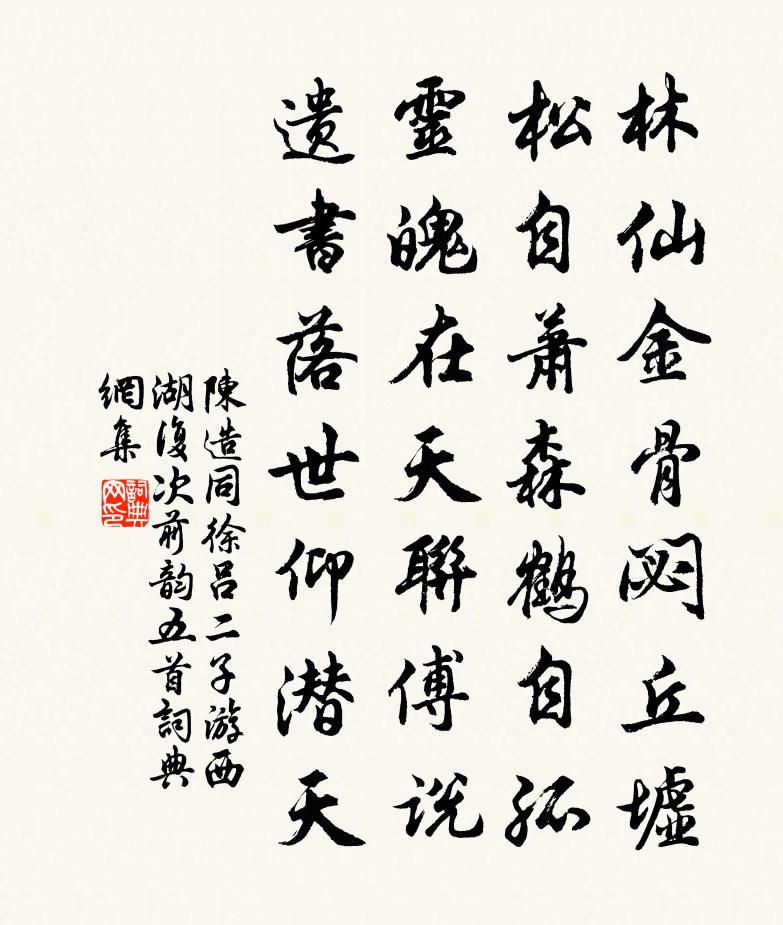 林仙金骨閟丘墟
松自蕭森鶴自孤
靈魄在天聯傅说
遗書落世仰潛天
陳造同徐呂二子游西
湖復次前韵五首詞典
網集
詞典
网印